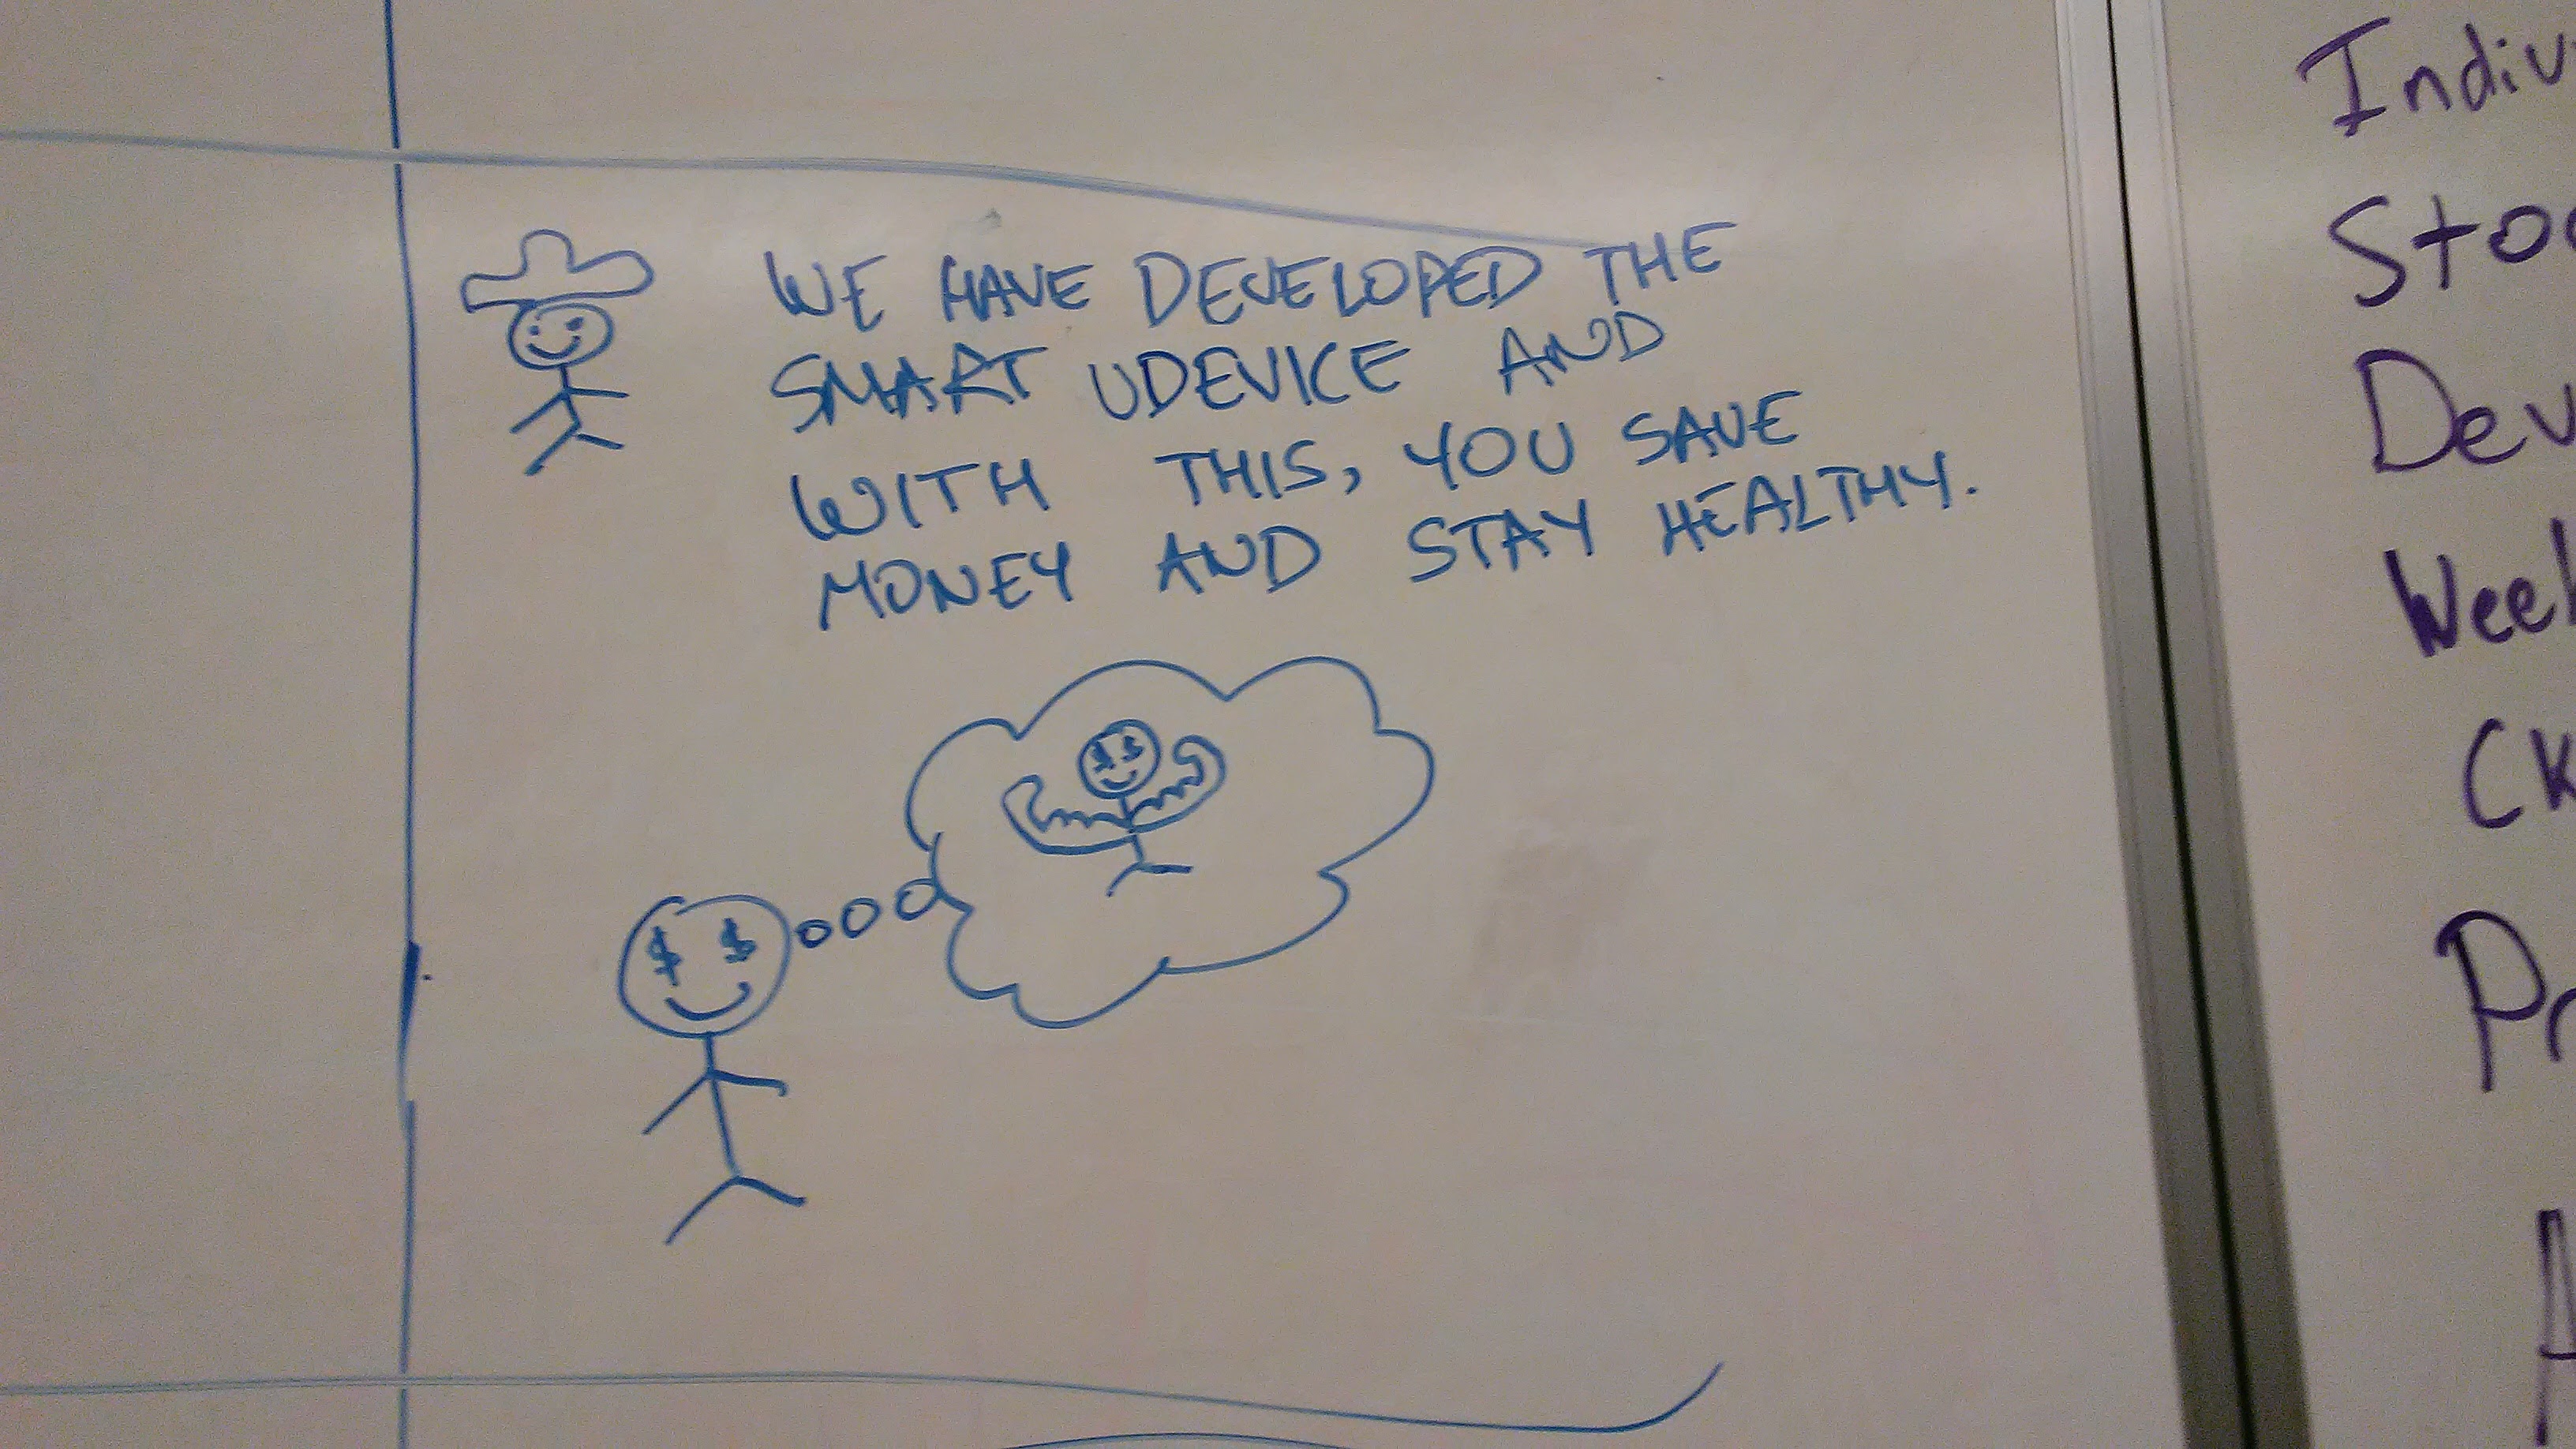 WE HAVE DEVELOPED THE
SMART UDEVICE AND
WITH THIS, YOU SAVE
MONEY AND STAY HEALTHY.
$ $
$ $
Indiv
Sto
Dev
Week
CK
Pr
A